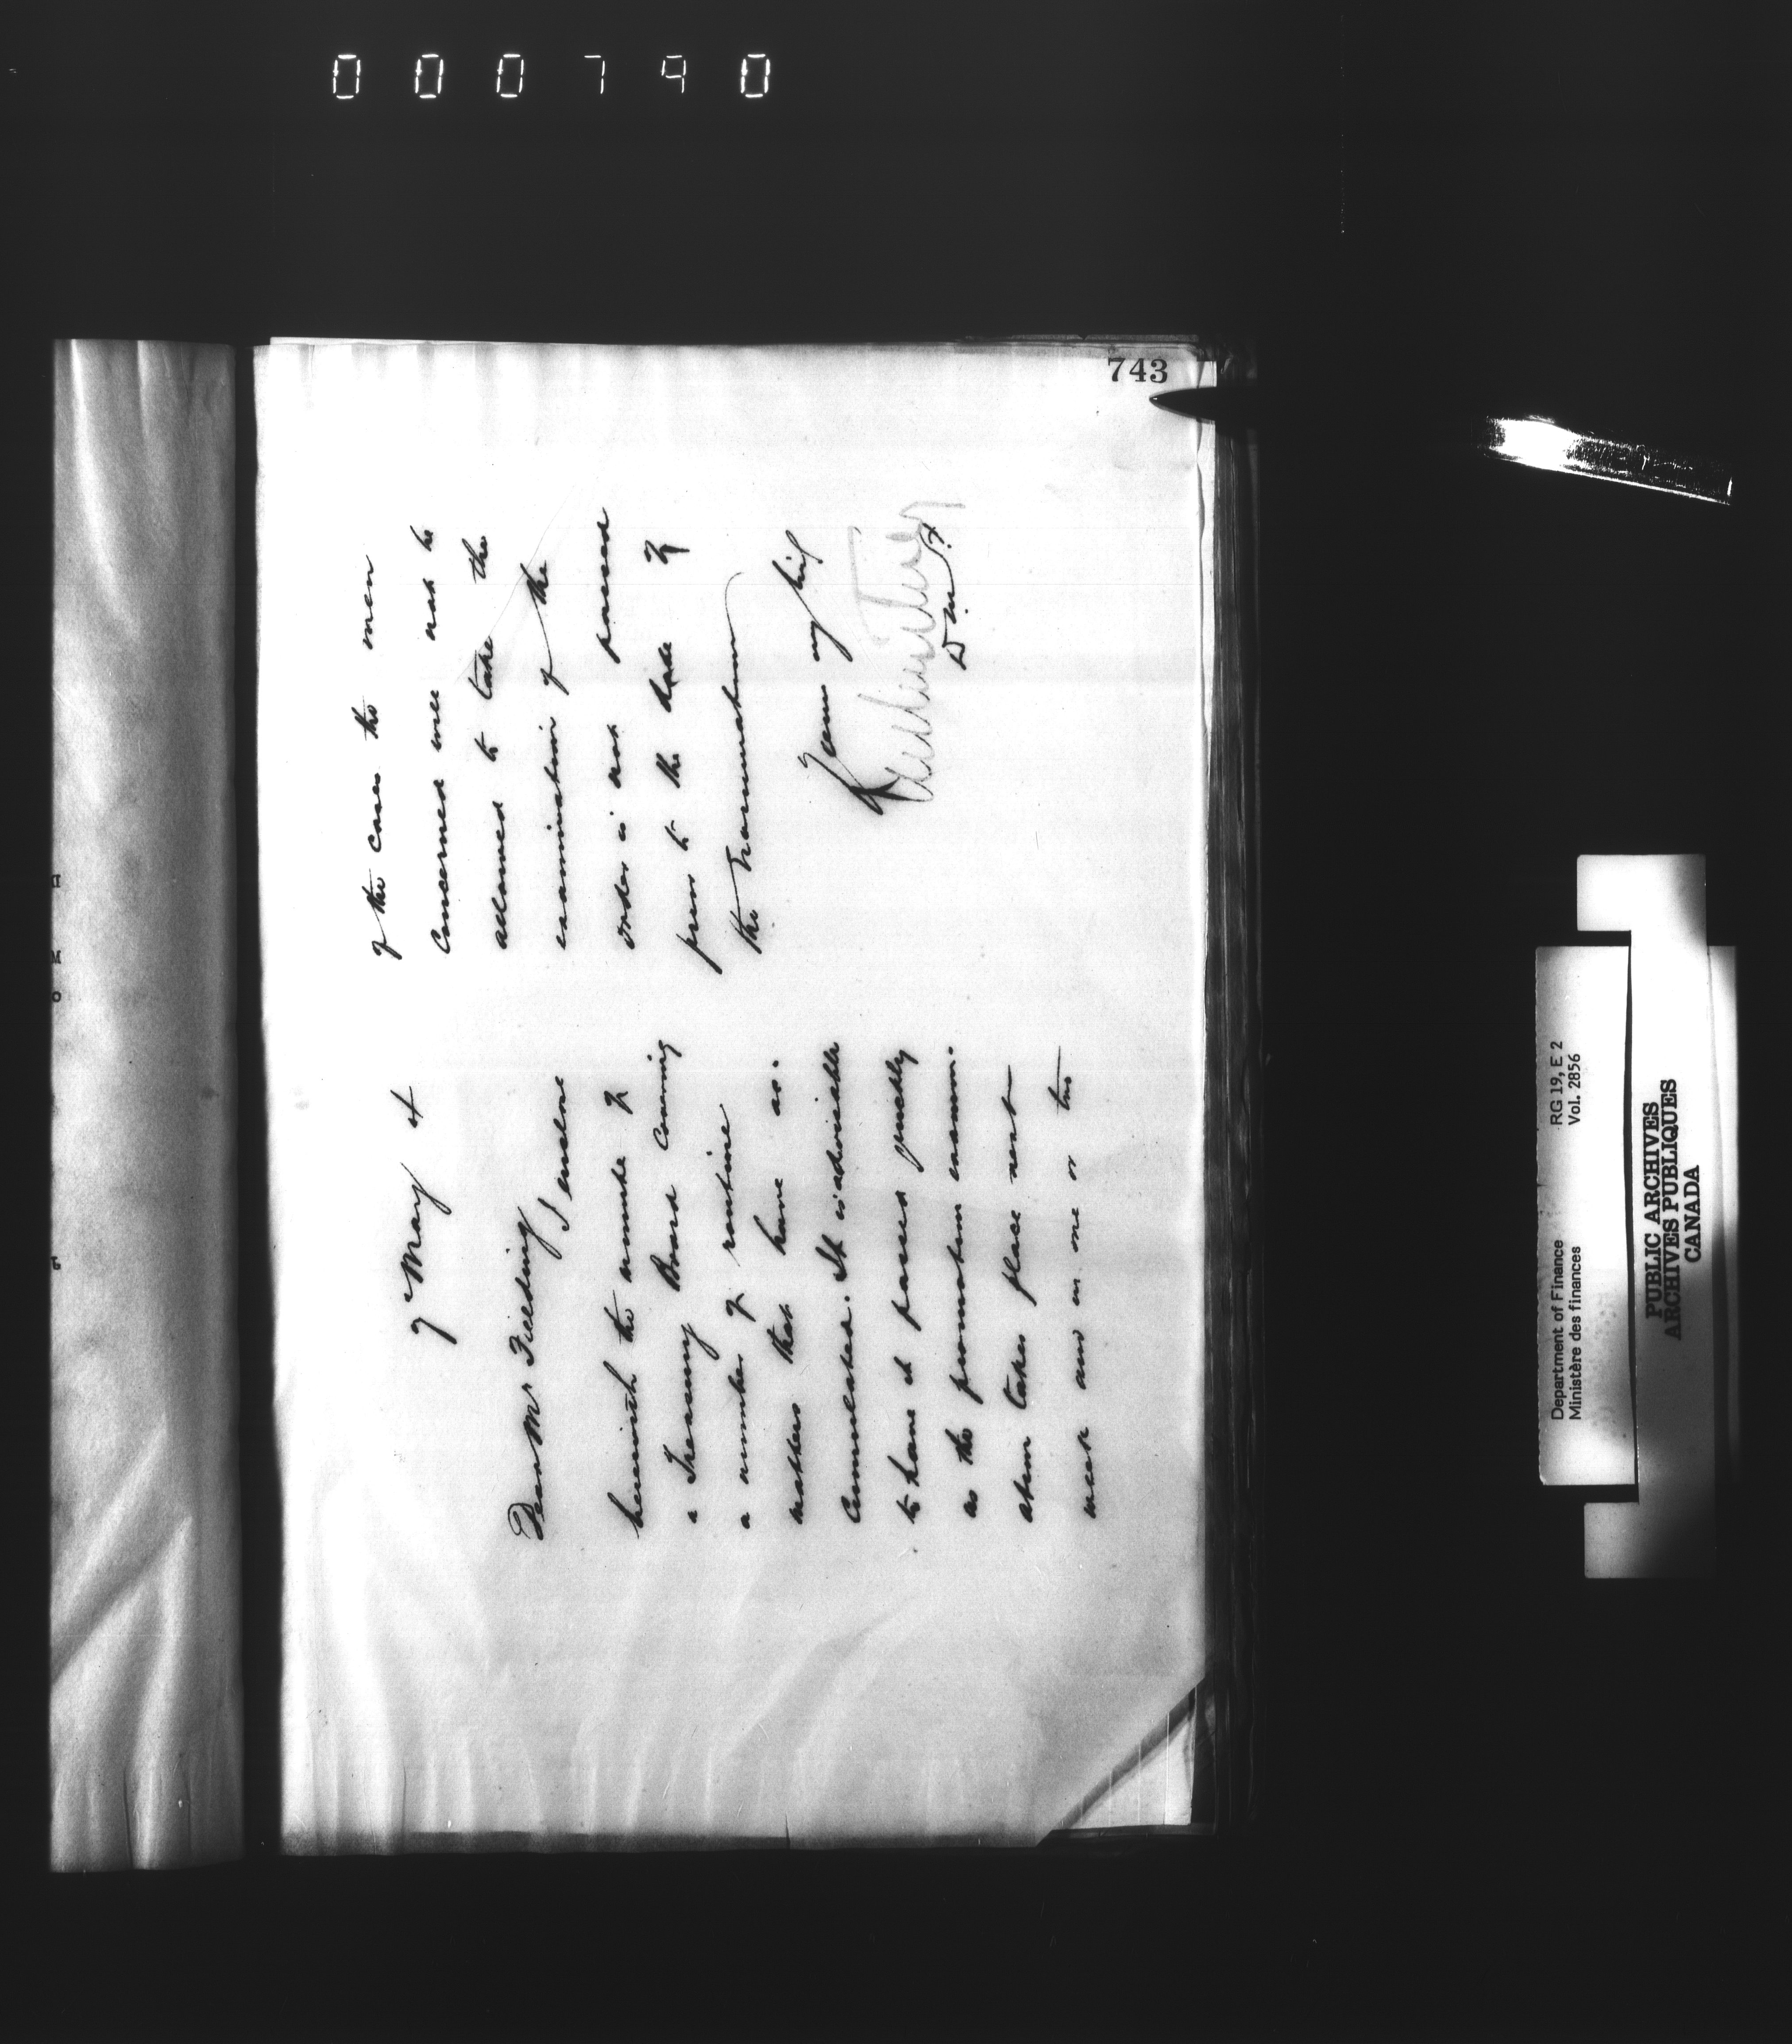 000790
743
9 May 4
Dear Mr Fielding
I enclose
herewith the minute of
a Treasury Board covering
a number of routine
matters that have ac-
cumulated. It is advisable
to have it passed quickly
as the promotion examin-
ation takes place next
week and in one or two
of the cases the men
concerned will not be
allowed to take the
examination if the
order is not passed
prior to the date of
the examination
Yours very truly
D.M.F.
Department of Finance RG 19, E 2
Ministère des finances Vol. 2856
PUBLIC ARCHIVES
ARCHIVES PUBLIQUES
CANADA